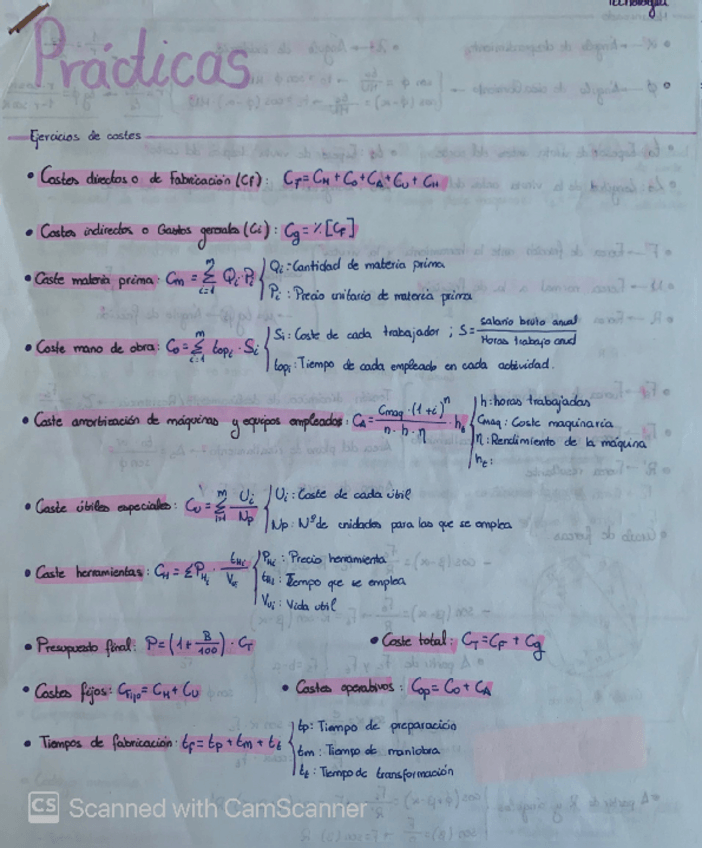 Tecnología
Prácticas
Ejercicios de costes
• Costes directos o de Fabricación (CF): CF = CM + CO + CA + CU + CH
• Costes indirectos o Gastos generales (Ci): Cg = % [CF]
• Coste materia prima: Cm = Σ(i=1→m) Qi · Pi { Qi: Cantidad de materia prima
Pi: Precio unitario de materia prima
• Coste mano de obra: CO = Σ(i=1→m) topi · Si { Si: Coste de cada trabajador ; S = salario bruto anual / Horas trabajo anual
topi: Tiempo de cada empleado en cada actividad.
• Coste amortización de máquinas y equipos empleados: CA = Cmaq · (1+i)^n / n · h · η · ht { h: horas trabajadas
Cmaq: Coste maquinaria
η: Rendimiento de la máquina
ht:
• Coste útiles especiales: CU = Σ(i=1→m) Ui / Np { Ui: Coste de cada útil
Np: Nº de unidades para las que se emplea
• Coste herramientas: CH = Σ PHi · tHi / Vui { PHi: Precio herramienta
tHi: Tiempo que se emplea
Vui: Vida útil
• Presupuesto final: P = (1 + B/100) · CT • Coste total: CT = CF + Cg
• Costes fijos: CFijo = CM + CU • Costes operativos: Cop = CO + CA
• Tiempos de fabricación: tf = tp + tm + tt { tp: Tiempo de preparación
tm: Tiempo de maniobra
tt: Tiempo de transformación
CS Scanned with CamScanner